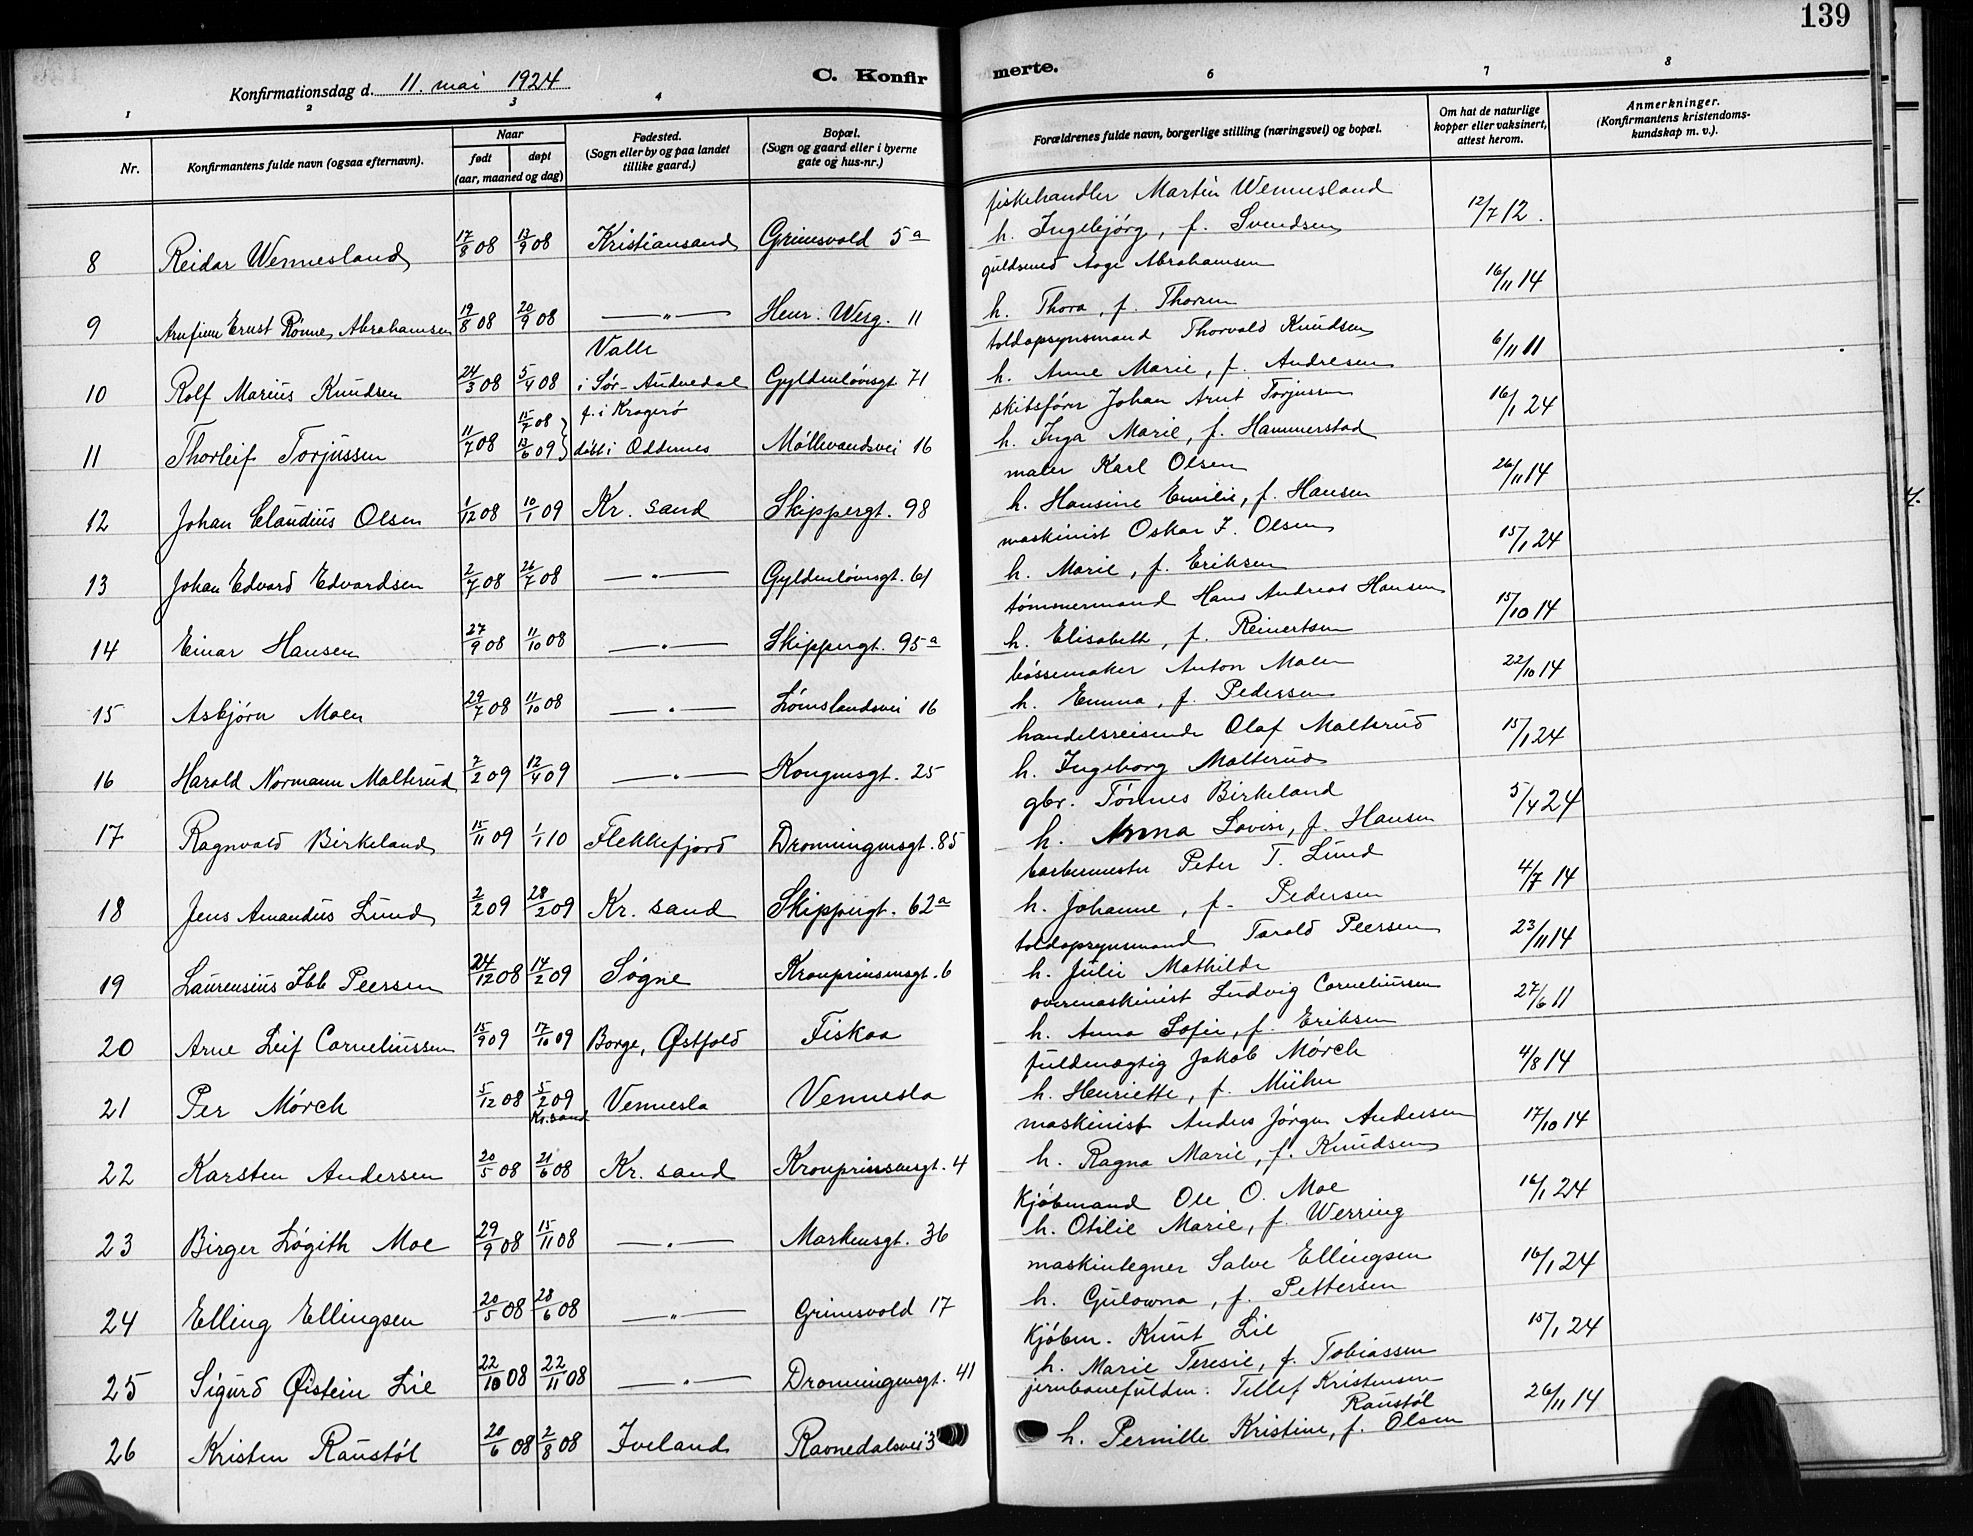 139
Konfirmationsdag d. 11. mai 1924
C. Konfirmerte.
1 2 3 4 6 7 8
Nr.
Konfirmantens fulde navn (ogsaa efternavn).
Naar
født
døpt
(aar, maaned og dag)
Fødested.
(Sogn eller by og paa landet
tillike gaard.)
Bopæl.
(Sogn og gaard eller i byerne
gate og hus-nr.)
Forældrenes fulde navn, borgerlige stilling (næringsvei) og bopæl.
Om hat de naturlige
kopper eller vaksinert,
attest herom.
Anmerkninger.
(Konfirmantens kristendoms-
kundskap m. v.).
fiskehandler Martin Wennesland
8 Reidar Wennesland 17/8 08 13/9 08 Kristiansand Grimsvold 5a h. Ingebjørg, f. Svendsen 12/7 12.
guldsmed Aage Abrahamsen
9 Arnfinn Ernst Rönne Abrahamsen 19/8 08 20/9 08 —„— Henr. Werg. 11 h. Thora, f. Thorsen 16/11 14
toldopsynsmand Thorvald Knudsen
10 Rolf Marius Knudsen 24/3 08 5/4 08 Valle i Sør-Audnedal Gyldenløvesgt. 71 h. Anne Marie, f. Andresen 6/11 11
skibsfører Johan Arnt Torjussen
11 Thorleif Torjussen 11/7 08 15/7 08 13/6 09 } f. i Kragerø døbt i Oddernes Møllevandsvei 16 h. Inga Marie, f. Hammerstad 16/1 24
maler Karl Olsen
12 Johan Claudius Olsen 1/12 08 10/1 09 Kr. sand Skippergt. 98 h. Hansine Emilie, f. Hansen 26/11 14
maskinist Oskar F. Olsen
13 Johan Edvard Edvardsen 2/7 08 26/7 08 —„— Gyldenløvesgt. 61 h. Marie, f. Eriksen 15/1 24
tømmermand Hans Andreas Hansen
14 Einar Hansen 27/9 08 11/10 08 —„— Skippergt. 95a h. Elisabeth, f. Reinertsen 15/10 14
bøssemaker Anton Moen
15 Asbjørn Moen 29/7 08 11/10 08 —„— Lømslandsvei 16 h. Emma, f. Pedersen 22/10 14
handelsreisende Olaf Malterud
16 Harald Normann Malterud 7/2 09 12/4 09 —„— Kongensgt. 25 h. Ingeborg Malterud 15/1 24
gbr. Tønnes Birkeland
17 Ragnvald Birkeland 15/11 09 1/1 10 Flekkefjord Dronningensgt. 85 h. Anna Lovise, f. Hansen 5/4 24
barbermester Peter T. Lund
18 Jens Amandus Lund 2/2 09 28/2 09 Kr. sand Skippergt. 62a h. Johanne, f. Pedersen 4/7 14
toldopsynsmand Tarald Peersen
19 Laurensius Ibb Peersen 24/12 08 14/2 09 Søgne Kronprinsensgt. 6 h. Julie Mathilde 23/11 14
overmaskinist Ludvig Corneliussen
20 Arne Leif Corneliussen 15/9 09 17/10 09 Borge, Østfold Fiskaa h. Anna Sofie, f. Eriksen 27/6 11
fuldmægtig Jakob Mørch
21 Per Mørch 5/12 08 5/2 09 Kr.sand Vennesla Vennesla h. Henriette, f. 4/8 14
maskinist Anders Jørgen Andersen
22 Karsten Andersen 20/5 08 21/6 08 Kr. sand Kronprinsensgt. 4 h. Ragna Marie, f. Knudsen 17/10 14
Kjøbmand Ole O. Moe
23 Birger Løgith Moe 29/9 08 15/11 08 —„— Markensgt. 36 h. Otilie Marie, f. Werring 16/1 24
maskintegner Salve Ellingsen
24 Elling Ellingsen 20/5 08 28/6 08 —„— Grimsvold 17 h. Gulowna, f. Pettersen 16/1 24
Kjøbm. Knut Lie
25 Sigurd Øistein Lie 22/10 08 22/11 08 —„— Dronningensgt. 41 h. Marie Teresie, f. Tobiassen 15/1 24
jernbanefuldm. Tellef Kristensen Raustøl
26 Kristen Raustøl 20/6 08 2/8 08 Iveland Ravnedalsvei 3 h. Pernille Kristine, f. Olsen 26/11 14